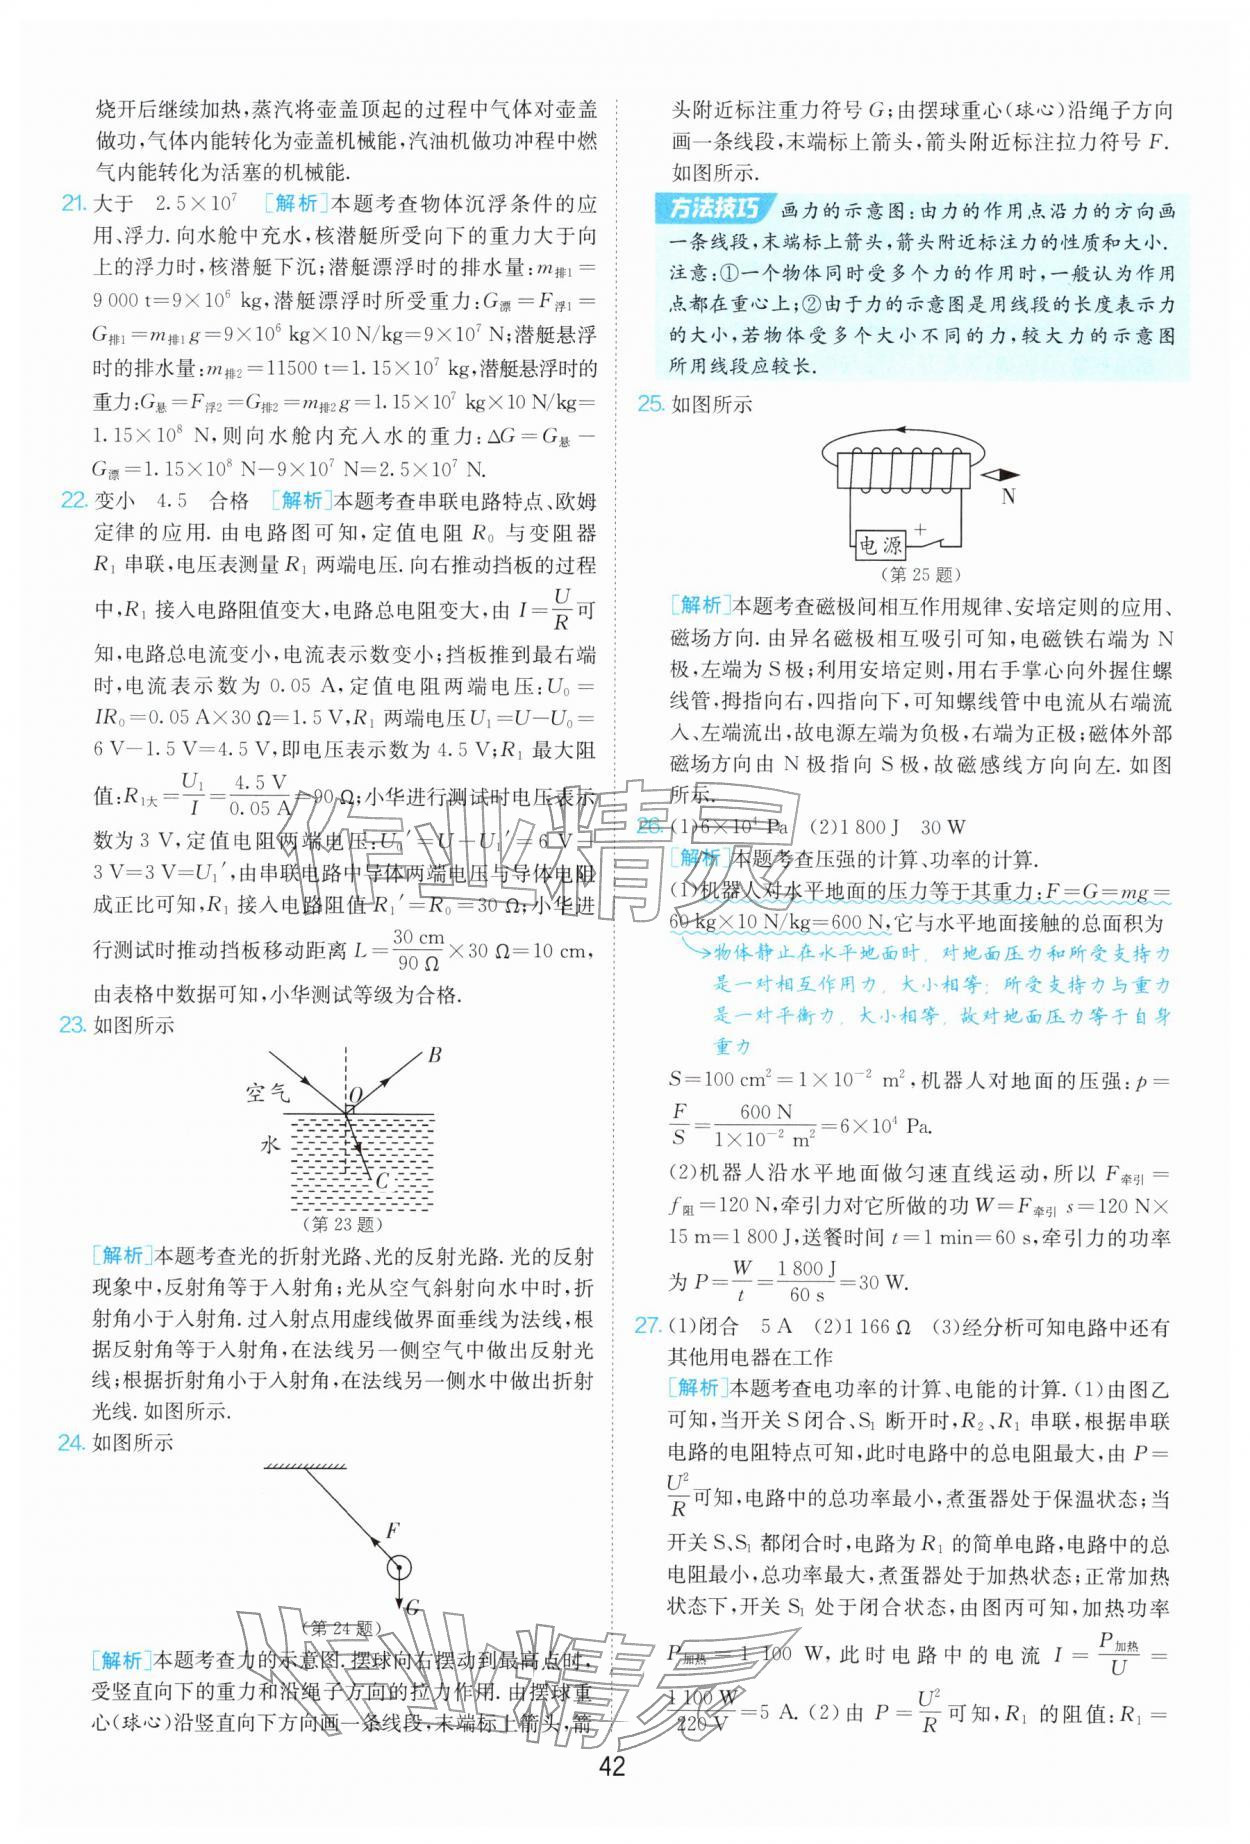 烧开后继续加热,蒸汽将壶盖顶起的过程中气体对壶盖
做功,气体内能转化为壶盖机械能,汽油机做功冲程中燃
气内能转化为活塞的机械能.
21. 大于 2.5×10⁷ [解析]本题考查物体沉浮条件的应
用、浮力.向水舱中充水,核潜艇所受向下的重力大于向
上的浮力时,核潜艇下沉;潜艇漂浮时的排水量:m排1=
9 000 t=9×10⁶ kg,潜艇漂浮时所受重力:G漂=F浮1=
G排1=m排1g=9×10⁶ kg×10 N/kg=9×10⁷ N;潜艇悬浮
时的排水量:m排2=11500 t=1.15×10⁷ kg,潜艇悬浮时的
重力:G悬=F浮2=G排2=m排2g=1.15×10⁷ kg×10 N/kg=
1.15×10⁸ N,则向水舱内充入水的重力:ΔG=G悬-
G漂=1.15×10⁸ N-9×10⁷ N=2.5×10⁷ N.
22. 变小 4.5 合格 [解析]本题考查串联电路特点、欧姆
定律的应用.由电路图可知,定值电阻 R₀ 与变阻器
R₁ 串联,电压表测量 R₁ 两端电压.向右推动挡板的过程
中,R₁ 接入电路阻值变大,电路总电阻变大,由 I=U/R可
知,电路总电流变小,电流表示数变小;挡板推到最右端
时,电流表示数为 0.05 A,定值电阻两端电压:U₀=
IR₀=0.05 A×30 Ω=1.5 V,R₁ 两端电压U₁=U-U₀=
6 V-1.5 V=4.5 V,即电压表示数为 4.5 V;R₁ 最大阻
值:R1大=U₁/I=4.5 V/0.05 A=90 Ω;小华进行测试时电压表示
数为 3 V,定值电阻两端电压:U₀′=U-U₁′=6 V-
3 V=3 V=U₁′,由串联电路中导体两端电压与导体电阻
成正比可知,R₁ 接入电路阻值 R₁′=R₀=30 Ω;小华进
行测试时推动挡板移动距离 L=30 cm/90 Ω×30 Ω=10 cm,
由表格中数据可知,小华测试等级为合格.
23. 如图所示
B
空气
O
水
C
(第 23 题)
[解析]本题考查光的折射光路、光的反射光路.光的反射
现象中,反射角等于入射角;光从空气斜射向水中时,折
射角小于入射角.过入射点用虚线做界面垂线为法线,根
据反射角等于入射角,在法线另一侧空气中做出反射光
线;根据折射角小于入射角,在法线另一侧水中做出折射
光线.如图所示.
24. 如图所示
F
G
(第 24 题)
[解析]本题考查力的示意图.摆球向右摆动到最高点时,
受竖直向下的重力和沿绳子方向的拉力作用.由摆球重
心(球心)沿竖直向下方向画一条线段,末端标上箭头,箭
头附近标注重力符号 G;由摆球重心(球心)沿绳子方向
画一条线段,末端标上箭头,箭头附近标注拉力符号 F.
如图所示.
方法技巧 画力的示意图:由力的作用点沿力的方向画
一条线段,末端标上箭头,箭头附近标注力的性质和大小.
注意:①一个物体同时受多个力的作用时,一般认为作用
点都在重心上;②由于力的示意图是用线段的长度表示力
的大小,若物体受多个大小不同的力,较大力的示意图
所用线段应较长.
25. 如图所示
N
+
电源
(第 25 题)
[解析]本题考查磁极间相互作用规律、安培定则的应用、
磁场方向.由异名磁极相互吸引可知,电磁铁右端为 N
极,左端为 S 极;利用安培定则,用右手掌心向外握住螺
线管,拇指向右,四指向下,可知螺线管中电流从右端流
入、左端流出,故电源左端为负极,右端为正极;磁体外部
磁场方向由 N 极指向 S 极,故磁感线方向向左.如图
所示.
26. (1)6×10⁴ Pa (2)1 800 J 30 W
[解析]本题考查压强的计算、功率的计算.
(1)机器人对水平地面的压力等于其重力:F=G=mg=
60 kg×10 N/kg=600 N,它与水平地面接触的总面积为
物体静止在水平地面时,对地面压力和所受支持力
是一对相互作用力,大小相等;所受支持力与重力
是一对平衡力,大小相等,故对地面压力等于自身
重力
S=100 cm²=1×10⁻² m²,机器人对地面的压强:p=
F/S=600 N/1×10⁻² m²=6×10⁴ Pa.
(2)机器人沿水平地面做匀速直线运动,所以 F牵引=
f阻=120 N,牵引力对它所做的功 W=F牵引 s=120 N×
15 m=1 800 J,送餐时间 t=1 min=60 s,牵引力的功率
为 P=W/t=1 800 J/60 s=30 W.
27. (1)闭合 5 A (2)1 166 Ω (3)经分析可知电路中还有
其他用电器在工作
[解析]本题考查电功率的计算、电能的计算.(1)由图乙
可知,当开关 S 闭合、S₁ 断开时,R₂、R₁ 串联,根据串联
电路的电阻特点可知,此时电路中的总电阻最大,由 P=
U²/R可知,电路中的总功率最小,煮蛋器处于保温状态;当
开关 S、S₁ 都闭合时,电路为 R₁ 的简单电路,电路中的总
电阻最小,总功率最大,煮蛋器处于加热状态;正常加热
状态下,开关 S₁ 处于闭合状态,由图丙可知,加热功率
P加热=1 100 W,此时电路中的电流 I=P加热/U=
1 100 W/220 V=5 A.(2)由 P=U²/R可知,R₁ 的阻值:R₁=
42
作业精灵
作业精灵